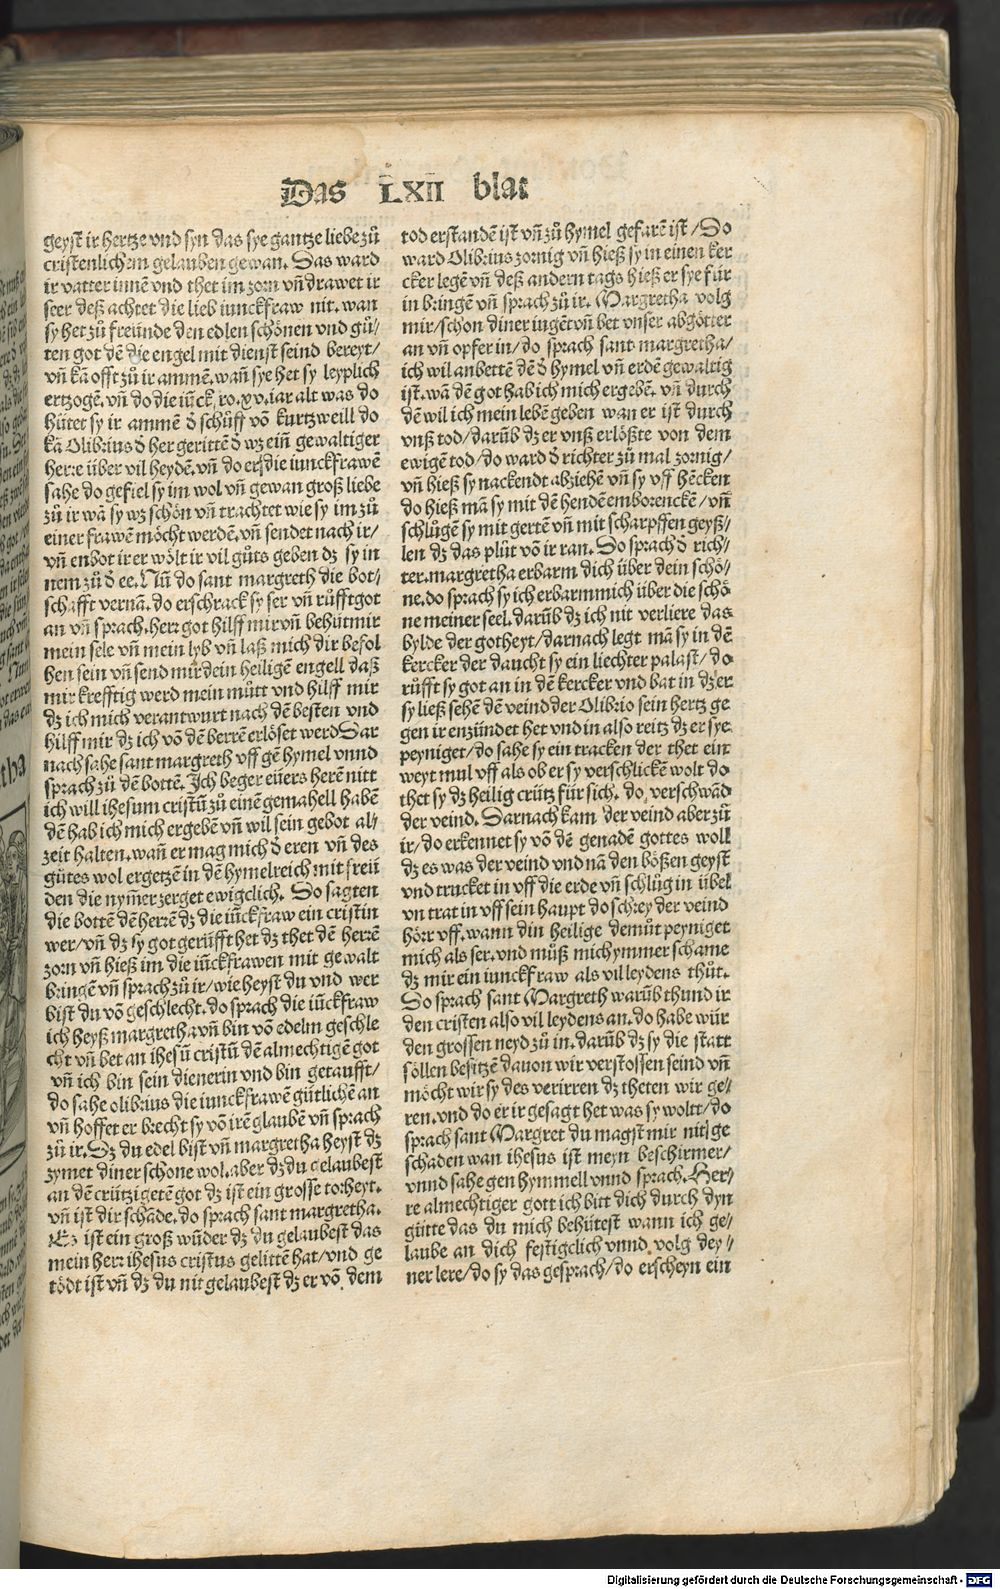 Das LXII blat
geyst ir hertze vnd syn das sye gantze liebe zů
cristenlichem gelauben gewan. Das ward
ir vatter innen vnd thet im zorn vñ drawet ir
seer deß achtet die lieb iunckfraw nit. wan
sy het zů freünde den edlen schönen vnd gů/
ten got dē die engel mit dienst seind bereyt/
vñ kā offt zů ir ammē. wañ sye het sy leyplich
ertzogē. vñ do die iūck, ro. xv. iar alt was do
hütet sy ir ammē d̄ schůff vō kurtzweill do
kā Olibrius d̄ her gerittē d̄ wz ein gewaltiger
herre über vil heydē. vñ do er die iunckfrawē
sahe do gefiel sy im wol vñ gewan groß liebe
zů ir wā sy wz schön vñ trachtet wie sy im zů
einer frawē möcht werdē. vñ sendet nach ir/
vñ enbot ir er wölt ir vil gůts geben dz sy in
nem zů d̄ ee. Nū do sant margreth die bot/
schafft vernā. do erschrack sy ser vñ růfft got
an vñ sprach. herr got hilff mir vñ behüt mir
mein sele vñ mein lyb vñ laß mich dir befol
hen sein vñ send mir dein heiligē engell daß
mir krefftig werd mein můtt vnd hilff mir
dz ich mich verantwurt nach dē besten vnd
hilff mir dz ich vō dē herrē erlöset werd Dar
nach sahe sant margreth vff gē hymel vnnd
sprach zů dē bottē. Jch beger eüers herē nitt
ich will ihesum cristū zů einē gemahell habē
dē hab ich mich ergebē vñ wil sein gebot al/
zeit halten. wañ er mag mich d̄ eren vñ des
gůtes wol ergetzē in dē hymelreich mit freü
den die nym̄er zerget ewigclich. Do sagten
die bottē dē herrē dz die iūckfraw ein cristin
wer/vñ dz sy got gerüfft het dz thet dē herrē
zorn vñ hieß im die iūckfrawen mit gewalt
bringē vñ sprach zů ir/wie heyst du vnd wer
bist du vō geschlecht. do sprach die iūckfraw
ich heyß margretha vñ bin vō edelm geschle
cht vñ bet an ihesū cristū dē almechtigē got
vñ ich bin sein dienerin vnd bin getaufft/
do sahe olibrius die iunckfrawē gütlichē an
vñ hoffet er brecht sy vō irē glaubē vñ sprach
zů ir. Dz du edel bist vñ margretha heyst dz
zymet diner schone wol. aber dz du gelaubest
an dē crützigetē got dz ist ein grosse torheyt.
vñ ist dir schade. do sprach sant margretha.
Es ist ein groß wūder dz du gelaubest das
mein herr ihesus cristus gelittē hat/vnd ge
tödt ist vñ dz du nit gelaubest dz er vō dem
tod erstandē ist vñ zů hymel gefarē ist/Do
ward Olibrius zornig vñ hieß sy in einen ker
cker legē vñ deß andern tags hieß er sye für
in bringē vñ sprach zů ir. Margretha volg
mir/schon diner iugēt vñ bet vnser abgötter
an vñ opfer in/do sprach sant margretha/
ich wil anbettē dē d̄ hymel vñ erdē gewaltig
ist. wā dē got hab ich mich ergebē. vñ durch
dē wil ich mein lebē geben wan er ist durch
vnß tod/darūb dz er vnß erlößte von dem
ewigē tod/do ward d̄ richter zů mal zornig/
vñ hieß sy nackendt abziehē vñ sy vff hēcken
do hieß mā sy mit dē hendē emborenckē/vñ
schlůgē sy mit gertē vñ mit scharpffen geyß/
len dz das plůt vō ir ran. Do sprach d̄ rich/
ter. margretha erbarm dich über dein schö/
ne. do sprach sy ich erbarm mich über die schö
ne meiner seel. darūb dz ich nit verliere das
bylde der gotheyt/darnach legt mā sy in dē
kercker der daucht sy ein liechter palast/do
růfft sy got an in dē kercker vnd bat in dz er
sy ließ sehē dē veind der Olibrio sein hertz ge
gen ir enzündet het vnd in also reitz dz er sye
peyniget/do sahe sy ein tracken der thet ein
weyt mul vff als ob er sy verschlickē wolt do
thet sy dz heilig crütz für sich. do verschwād
der veind. Darnach kam der veind aber zů
ir/do erkennet sy vō dē genadē gottes woll
dz es was der veind vnd nā den bößen geyst
vnd trucket in vff die erde vñ schlůg in übel
vn trat in vff sein haupt do schrey der veind
hörr vff. wann din heilige demůt peyniget
mich als ser. vnd můß mich ymmer schame
dz mir ein iunckfraw als vil leydens thůt.
Do sprach sant Margreth warūb thund ir
den cristen also vil leydens an. do habē wür
den grossen neyd zů in. darūb dz sy die statt
söllen besitzē dauon wir verstossen seind vñ
möcht wir sy des verirren dz theten wir ge/
ren. vnd do er ir gesagt het was sy woltt/do
sprach sant Margret du magst mir nit ge
schaden wan ihesus ist meyn beschirmer/
vnnd sahe gen hymmell vnnd sprach. Her/
re almechtiger gott ich bitt dich durch dyn
gütte das du mich behütest wann ich ge/
laube an dich festigclich vnnd volg dey/
ner lere/do sy das gesprach/do erscheyn ein
Digitalisierung gefördert durch die Deutsche Forschungsgemeinschaft - DFG